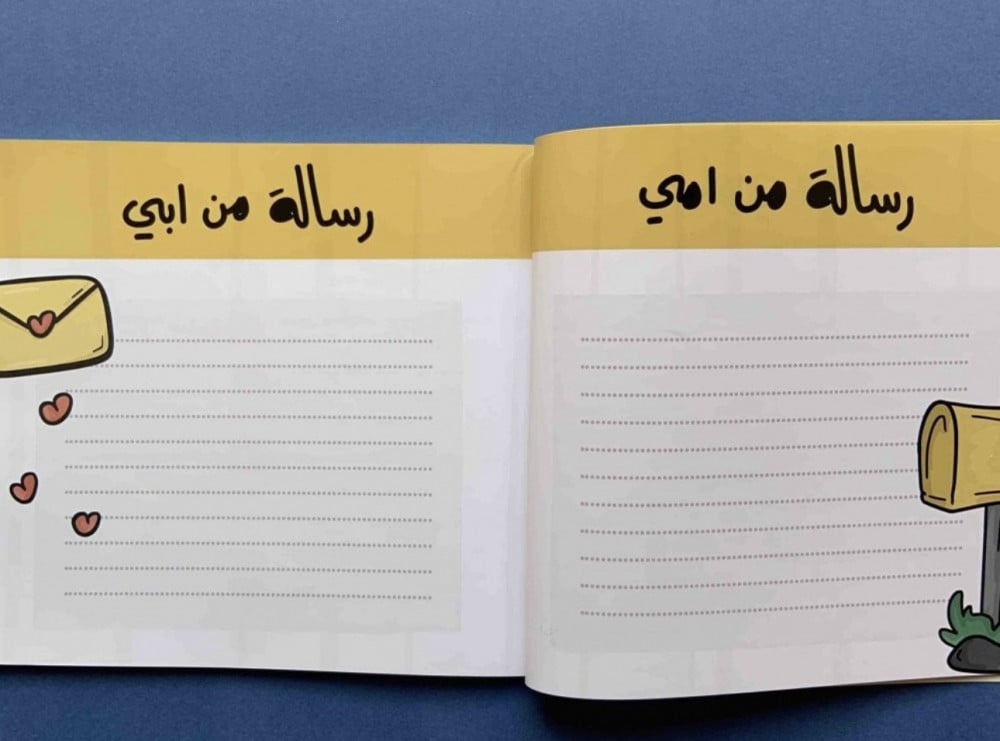 رسالة من امي
رسالة من ابي